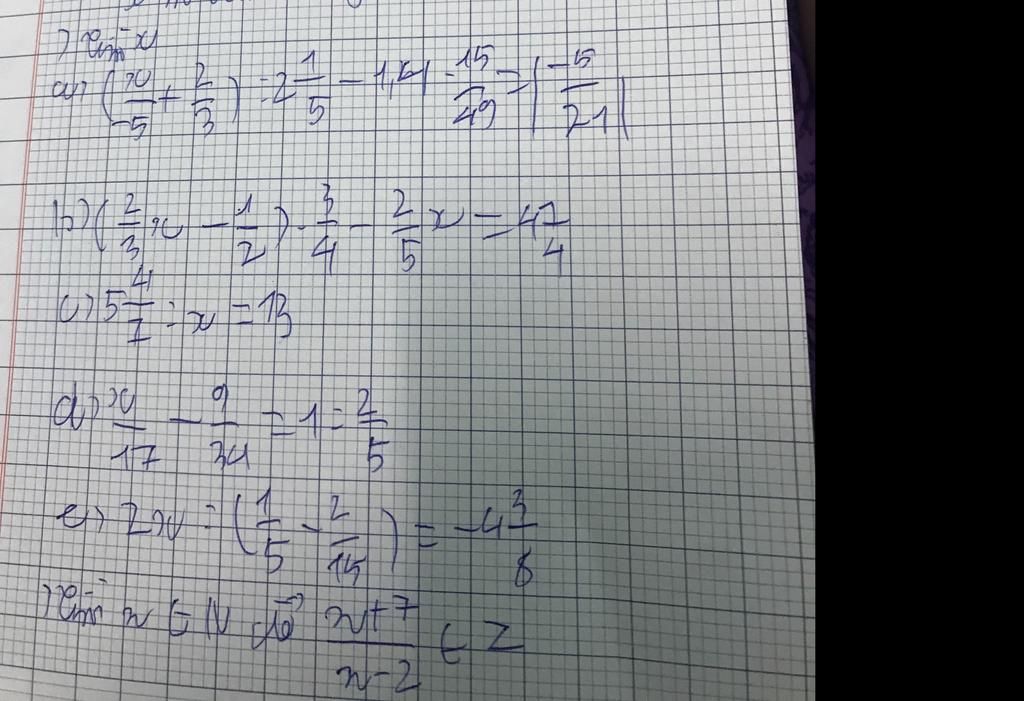 ) Tìm x
a) (x/-5 + 2/3) : 2 1/5 - 1,4 . 15/49 = |-5/21|
b) (2/3 x - 1/2) . 3/4 - 2/5 x = 4 7/4
c) 5 4/7 : x = 13
d) x/17 - 9/34 = 1 = 2/5
e) 2x : (1/5 - 2/15) = -4 3/8
) Tìm n ∈ N để n+7/n-2 ∈ Z